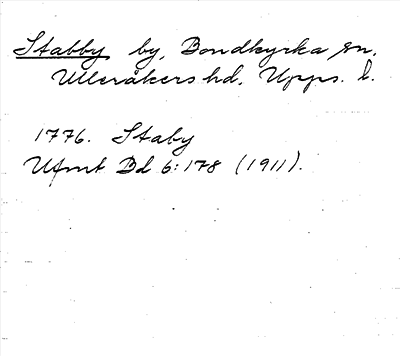 Stabby by, Bondkyrka sn.
Ulleråkers hd, Upps. l.
1776. Staby
Ufmt Bd 6:178 (1911).